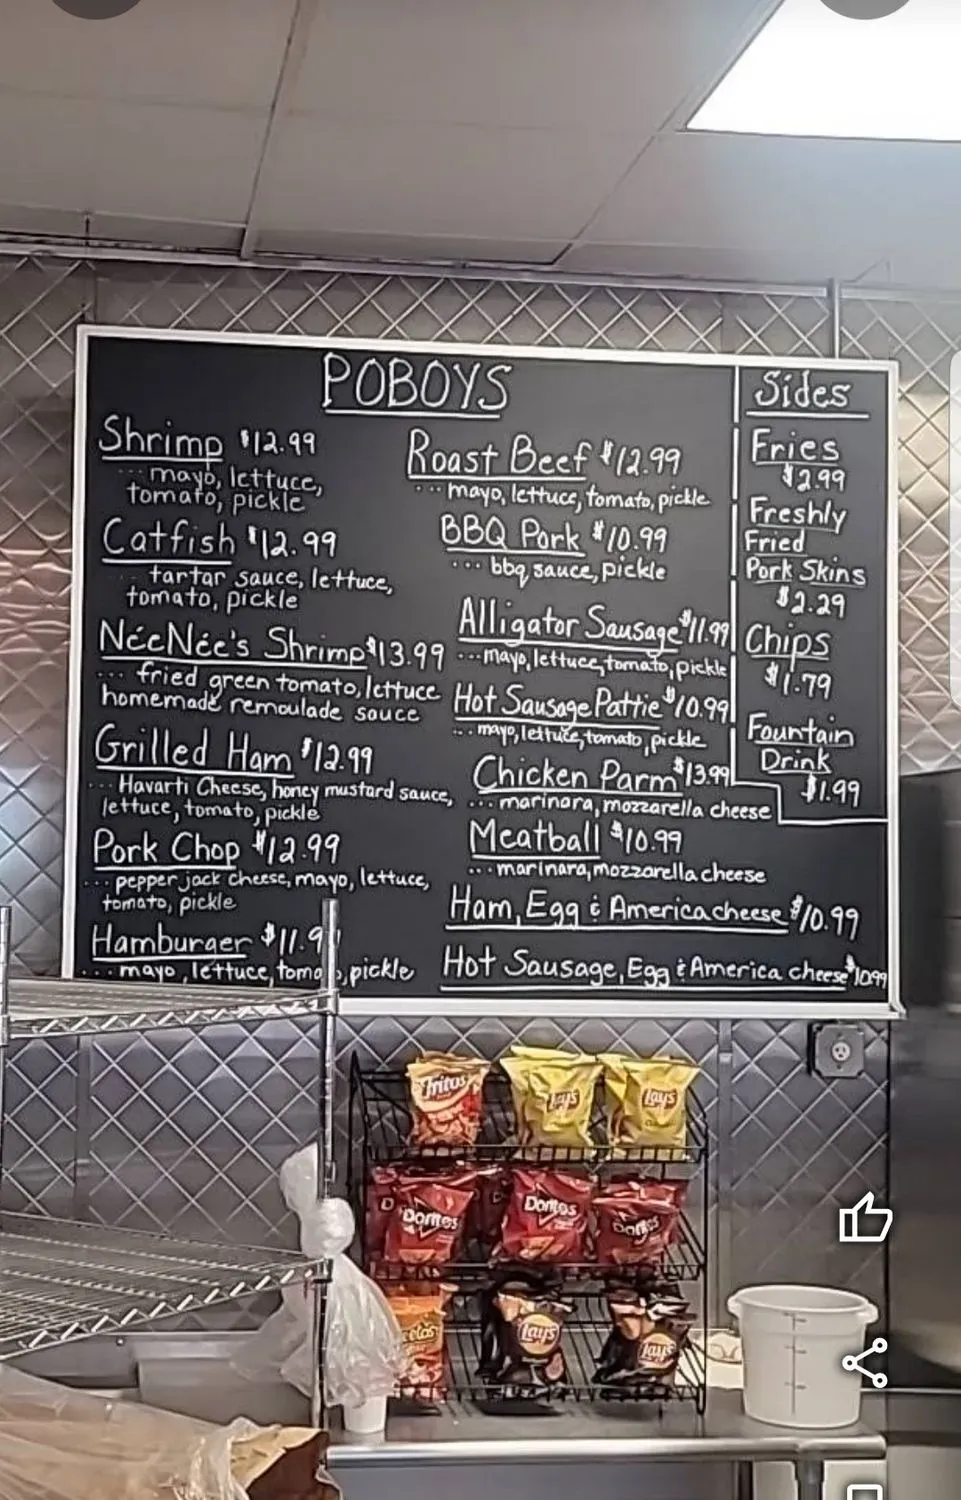 POBOYS
Shrimp $12.99
... mayo, lettuce,
tomato, pickle
Catfish $12.99
... tartar sauce, lettuce,
tomato, pickle
NéeNée's Shrimp $13.99
... fried green tomato, lettuce
homemade remoulade sauce
Grilled Ham $12.99
... Havarti Cheese, honey mustard sauce,
lettuce, tomato, pickle
Pork Chop $12.99
... pepper jack cheese, mayo, lettuce,
tomato, pickle
Hamburger
... mayo, lettuce, pickle
Roast Beef $12.99
... mayo, lettuce, tomato, pickle
BBQ Pork $10.99
... bbq sauce, pickle
Alligator Sausage $11.99
... mayo, lettuce, tomato, pickle
Hot Sausage Pattie $10.99
... mayo, lettuce, tomato, pickle
Chicken Parm $13.99
... marinara, mozzarella cheese
Meatball $10.99
... marinara, mozzarella cheese
Ham, Egg & America cheese $10.99
Hot Sausage, Egg & America cheese $10.99
Sides
Fries
$2.99
Freshly
Fried
Pork Skins
$2.29
Chips
$1.79
Fountain
Drink
$1.99
Fritos
Lay's
Lay's
Doritos
Doritos
Doritos
Lay's
Lay's